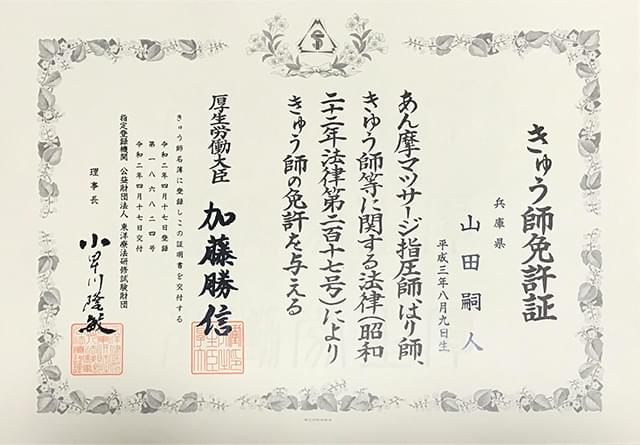 きゅう師免許証
兵庫県
山田嗣人
平成三年八月九日生
あん摩マツサージ指圧師、はり師、
きゆう師等に関する法律(昭和
二十二年法律第二百十七号)により
きゅう師の免許を与える
厚生労働大臣 加藤勝信
きゅう師名簿に登録しこの証明書を交付する
令和二年四月十七日登録
第一八六八二四号
令和二年四月十七日交付
指定登録機関 公益財団法人 東洋療法研修試験財団
理事長 小早川隆敏